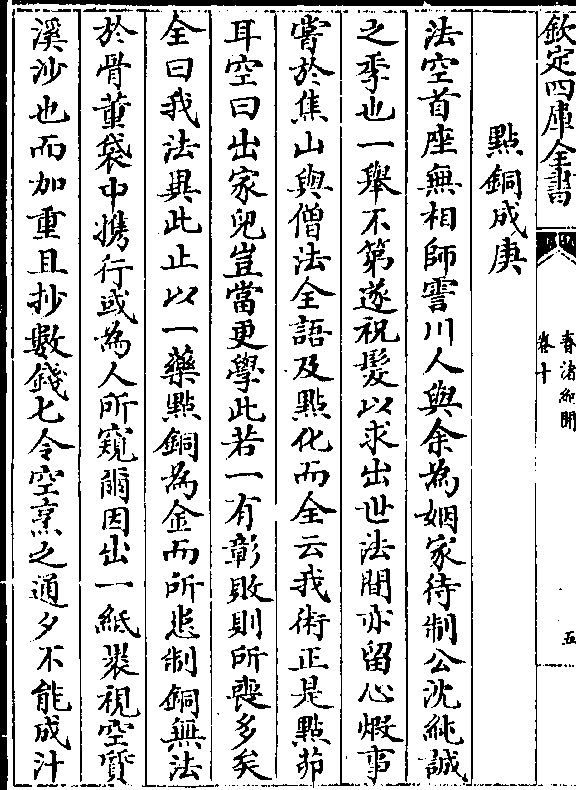 欽定四庫全書
春渚紀聞
卷十
五
點銅成庚
法空首座無相師霅川人與余為姻家待制公沈純誠
之季也一舉不第遂祝髮以求出世法間亦留心煆事
嘗於焦山與僧法全語及點化而全云我術正是點茆
耳空曰出家兒豈當更學此若一有彰敗則所喪多矣
全曰我法異此止以一藥點銅為金而所患制銅無法
於骨董袋中擕行或為人所窺爾因出一紙裝視空質
溪沙也而加重且抄數錢匕令空烹之通夕不能成汁